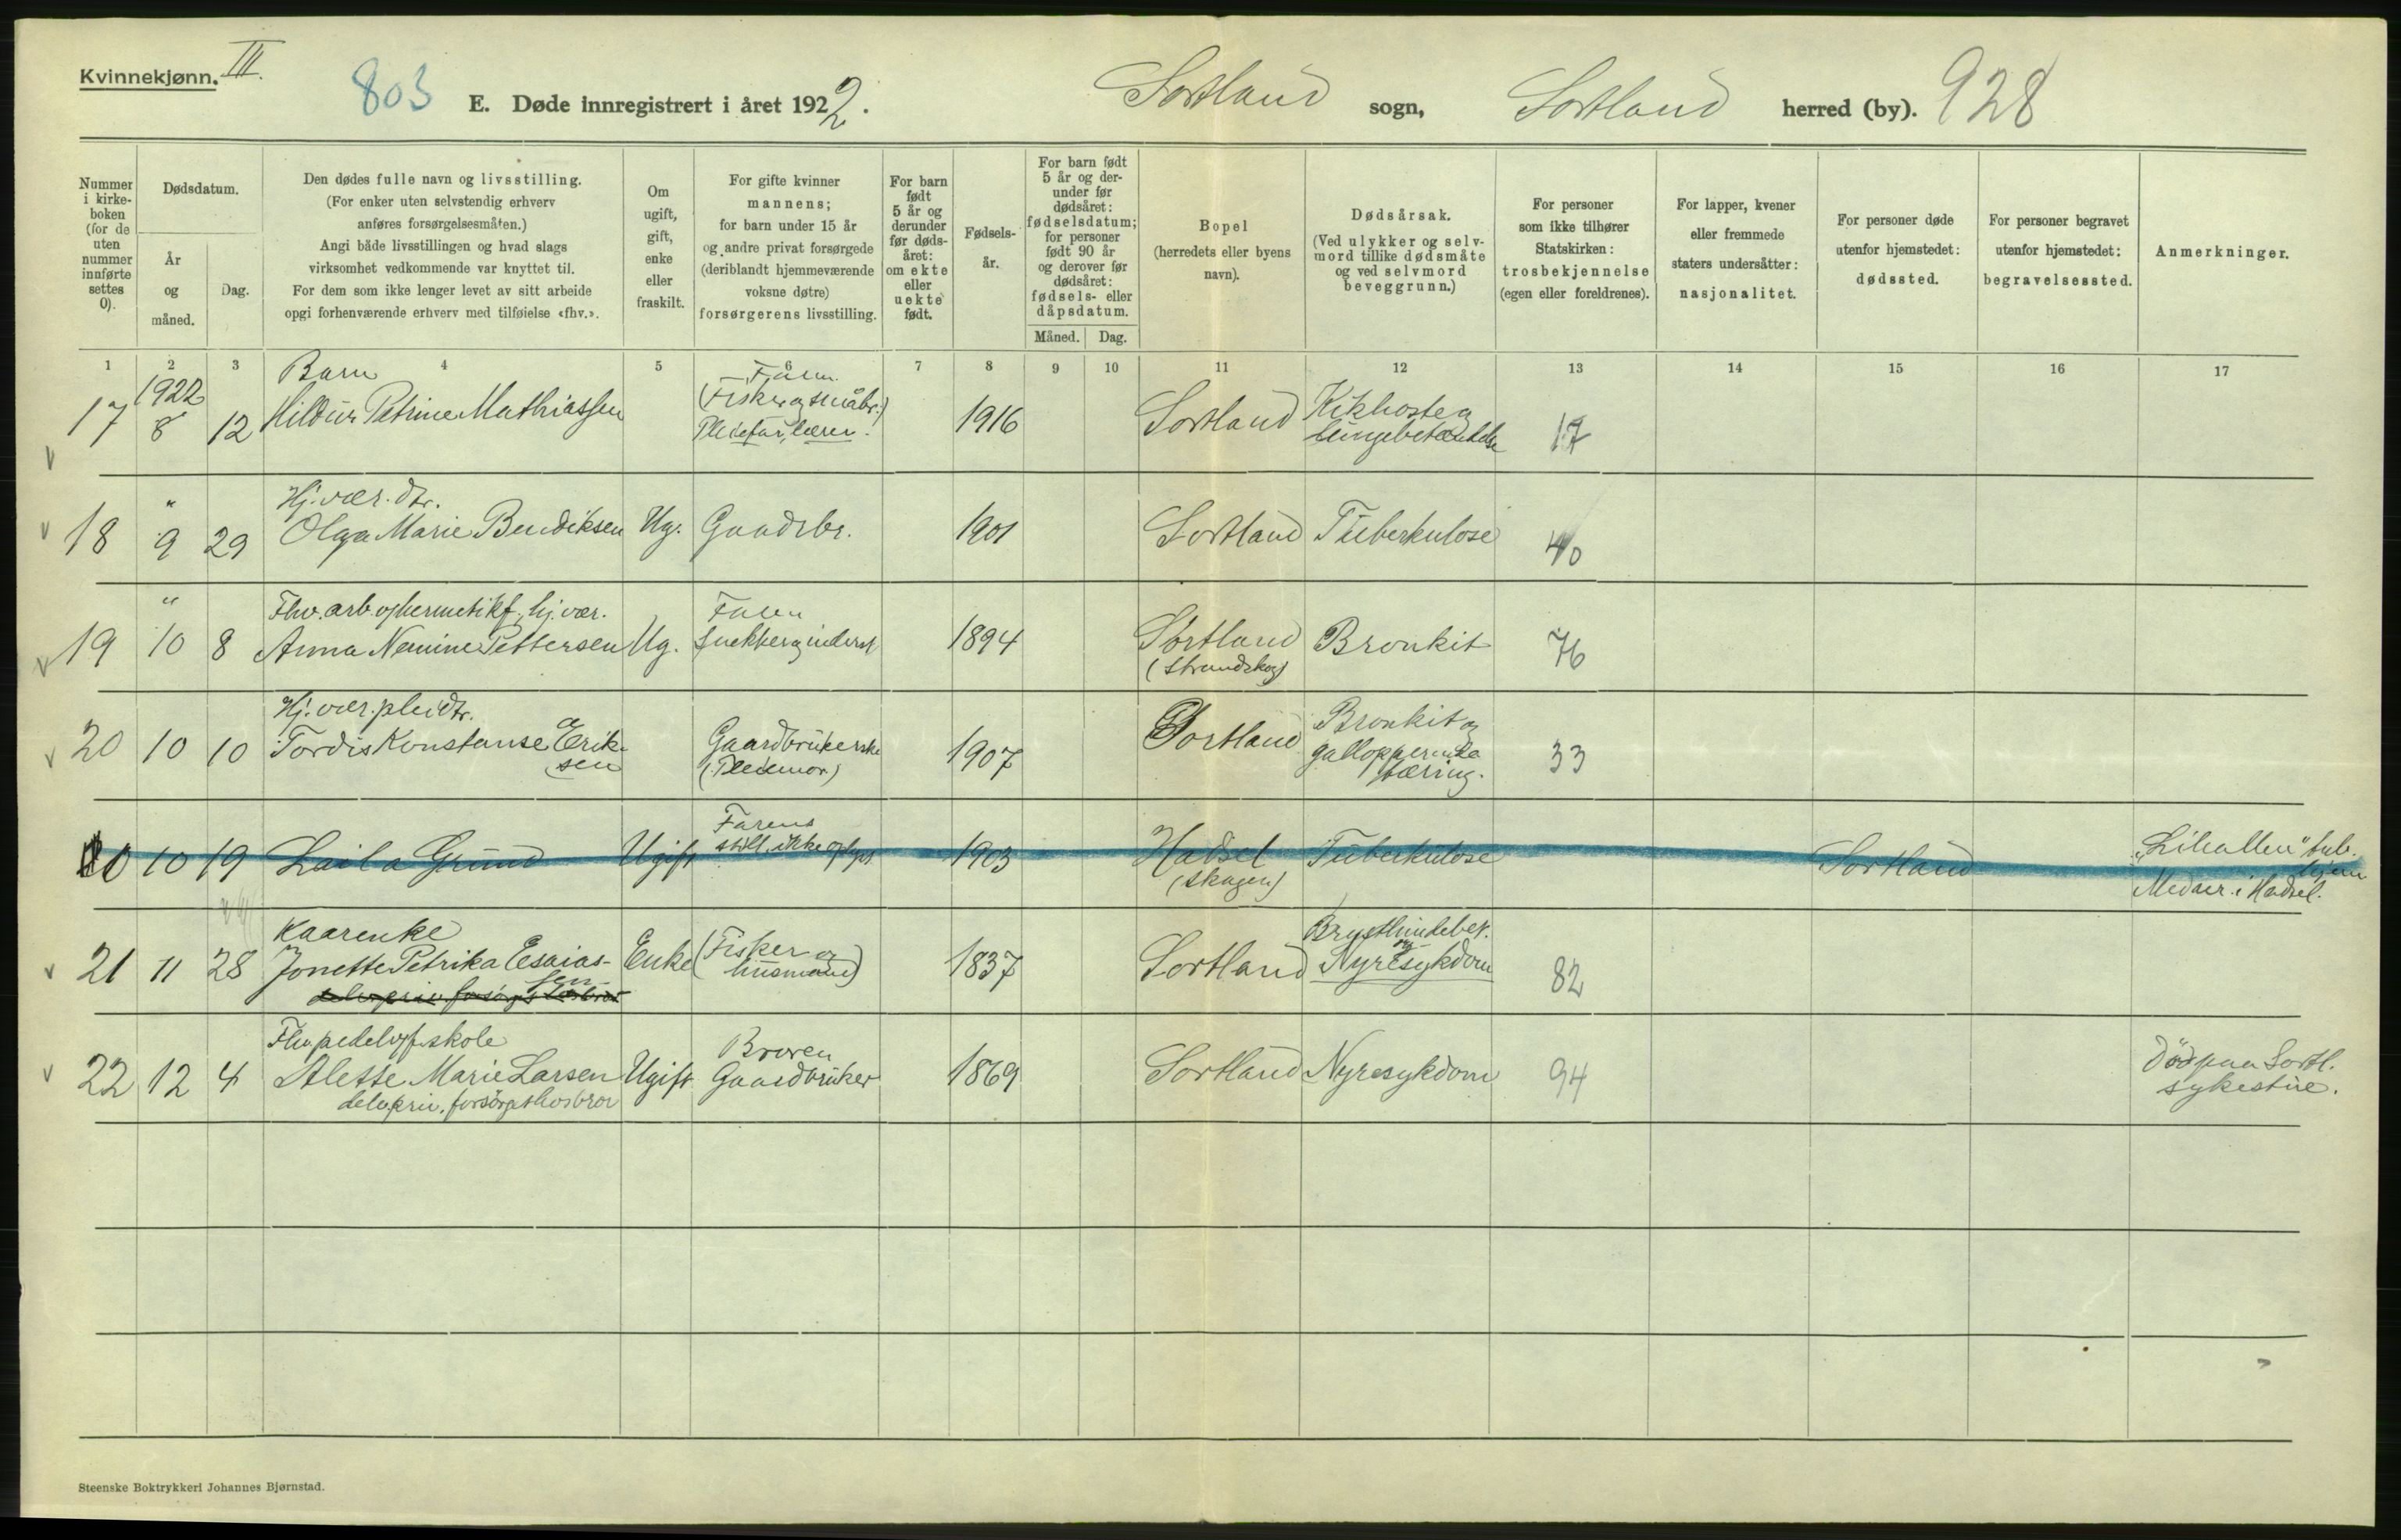 Kvinnekjønn. III.
803
E. Døde innregistrert i året 1922.
Sortland sogn, Sortland herred (by). 928
Nummer i kirke-boken (for de uten nummer innførte settes 0).
Dødsdatum.
År og måned.
Dag.
Den dødes fulle navn og livsstilling.
(For enker uten selvstendig erhverv
anføres forsørgelsesmåten.)
Angi både livsstillingen og hvad slags
virksomhet vedkommende var knyttet til.
For dem som ikke lenger levet av sitt arbeide
opgi forhenværende erhverv med tilføielse «fhv.».
Om
ugift,
gift,
enke
eller
fraskilt.
For gifte kvinner
mannens;
for barn under 15 år
og andre privat forsørgede
(deriblandt hjemmeværende
voksne døtre)
forsørgerens livsstilling.
For barn
født
5 år og
derunder
før døds-
året:
om ekte
eller
uekte
født.
Fødsels-
år.
For barn født
5 år og der-
under før
dødsåret:
fødselsdatum;
for personer
født 90 år
og derover før
dødsåret:
fødsels- eller
dåpsdatum.
Måned. Dag.
Bopel
(herredets eller byens
navn).
Dødsårsak.
(Ved ulykker og selv-
mord tillike dødsmåte
og ved selvmord
beveggrunn.)
For personer
som ikke tilhører
Statskirken:
trosbekjennelse
(egen eller foreldrenes).
For lapper, kvener
eller fremmede
staters undersåtter:
nasjonalitet.
For personer døde
utenfor hjemstedet:
dødssted.
For personer begravet
utenfor hjemstedet:
begravelsessted.
Anmerkninger.
1 2 3 4 5 6 7 8 9 10 11 12 13 14 15 16 17
1922 Barn
17 8 12 Hildur Petrine Mathiassen
(Fisker og småbr.)
Pleiefar, lærer.
1916 Sortland Kikhoste og
lungebetændelse
17
" Hj. vær. dtr.
18 9 29 Olga Marie Bendiksen Ug. Gaardbr. 1901 Sortland Tuberkulose 40
" Fhv. arb. hermetikf., hj. vær.
19 10 8 Anna Nemine Pettersen Ug.
Faren
inderst
1894 Sortland
(Strandskog)
Bronkit 76
Hj. vær. pleidtr.
20 10 10 Tordis Konstanse Erik-
sen
Gaardbrukerske
(Pleiemor)
1907 Sortland Bronkit og
galopperende
tæring.
33
0 10 19 Laila Grund Ugift
Farens
still. ikke oplyst
1903 Hadsel
(Skagen)
Tuberkulose Sortland
"Lihallen" tub.
hjem
Meddr. i Hadsel.
Kaarenke
21 11 28 Jonette Petrika Esaias-
sen
Enke (Fisker og
husmand)
1837 Sortland
Brysthindebet.
og
Nyresykdom
82
Fhv. pedel v/f. skole
22 12 4 Alette Marie Larsen
delv. priv. forsørget hos bror
Ugift
Broren
Gaardbruker
1869 Sortland Nyresykdom 94
Död paa Sortl.
sykestue.
Steenske Boktrykkeri Johannes Bjørnstad.